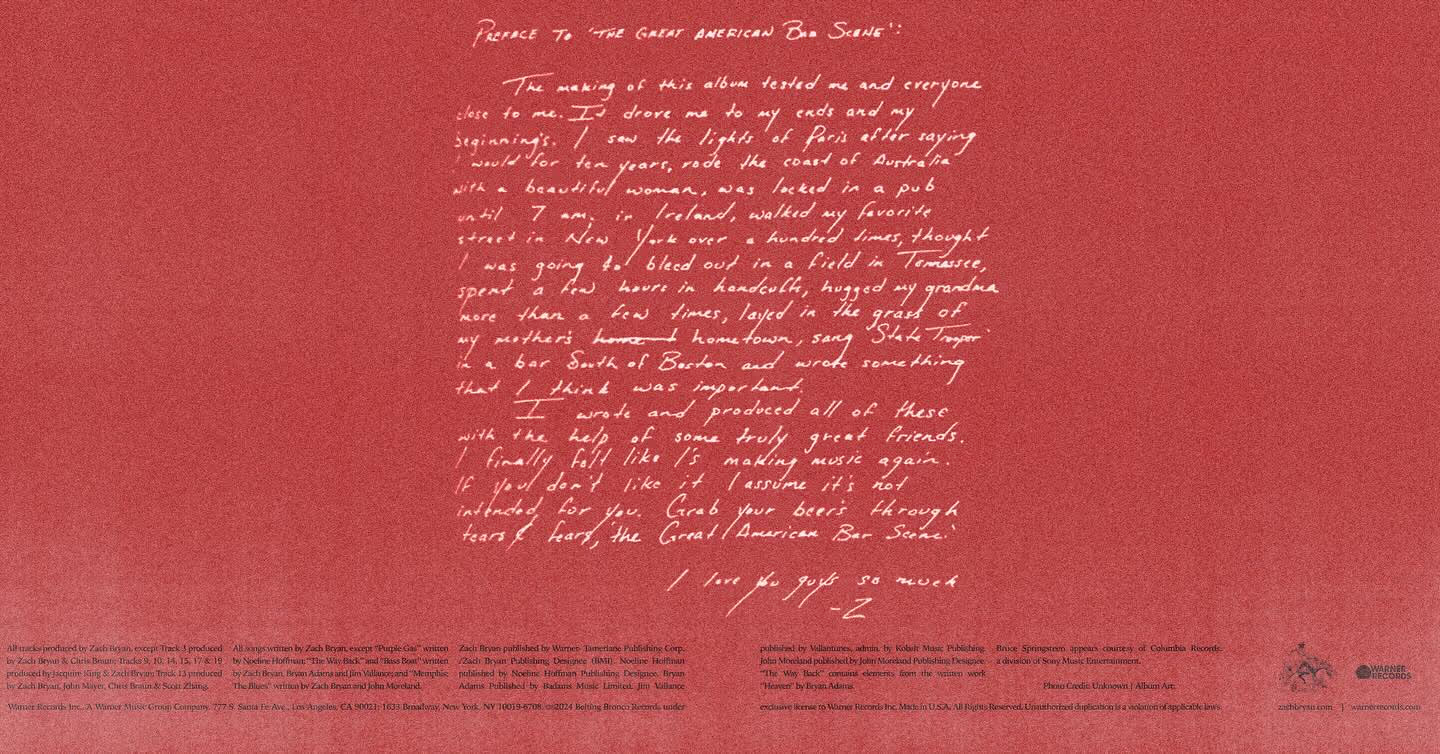 PREFACE TO 'THE GREAT AMERICAN BAR SCENE':
The making of this album tested me and everyone
close to me. It drove me to my ends and my
beginning's. I saw the lights of Paris after saying
I would for ten years, rode the coast of Australia
with a beautiful woman, was locked in a pub
until 7 am. in Ireland, walked my favorite
street in New York over a hundred times, thought
I was going to bleed out in a field in Tennessee,
spent a few hours in handcuffs, hugged my grandma
more than a few times, layed in the grass of
my mother's hometown, sang 'State Trooper'
in a bar South of Boston and wrote something
that I think was important.
I wrote and produced all of these
with the help of some truly great friends.
I finally felt like I's making music again.
If you don't like it I assume it's not
intended for you. Grab your beers through
tears & fears, 'the Great American Bar Scene.'
I love you guys so much
-Z
All tracks produced by Zach Bryan, except Track 3 produced
by Zach Bryan & Chris Braun; Tracks 9, 10, 14, 15, 17 & 19
produced by Jacquire King & Zach Bryan; Track 13 produced
by Zach Bryan, John Mayer, Chris Braun & Scott Zhang.
All songs written by Zach Bryan, except "Purple Gas" written
by Noeline Hoffman; "The Way Back" and "Bass Boat" written
by Zach Bryan, Bryan Adams and Jim Vallance; and "Memphis;
The Blues" written by Zach Bryan and John Moreland.
Zach Bryan published by Warner- Tamerlane Publishing Corp.
/Zach Bryan Publishing Designee (BMI). Noeline Hoffman
published by Noeline Hoffman Publishing Designee. Bryan
Adams Published by Badams Music Limited. Jim Vallance
published by Vallantunes, admin. by Kobalt Music Publishing.
John Moreland published by John Moreland Publishing Designee.
"The Way Back" contains elements from the written work
"Heaven" by Bryan Adams.
Bruce Springsteen appears courtesy of Columbia Records,
a division of Sony Music Entertainment.
Photo Credit: Unknown | Album Art:
WARNER
RECORDS
Warner Records Inc., A Warner Music Group Company. 777 S. Santa Fe Ave., Los Angeles, CA 90021; 1633 Broadway, New York, NY 10019-6708. ℗©2024 Belting Bronco Records under
exclusive license to Warner Records Inc. Made in U.S.A. All Rights Reserved. Unauthorized duplication is a violation of applicable laws.
zachbryan.com | warnerrecords.com